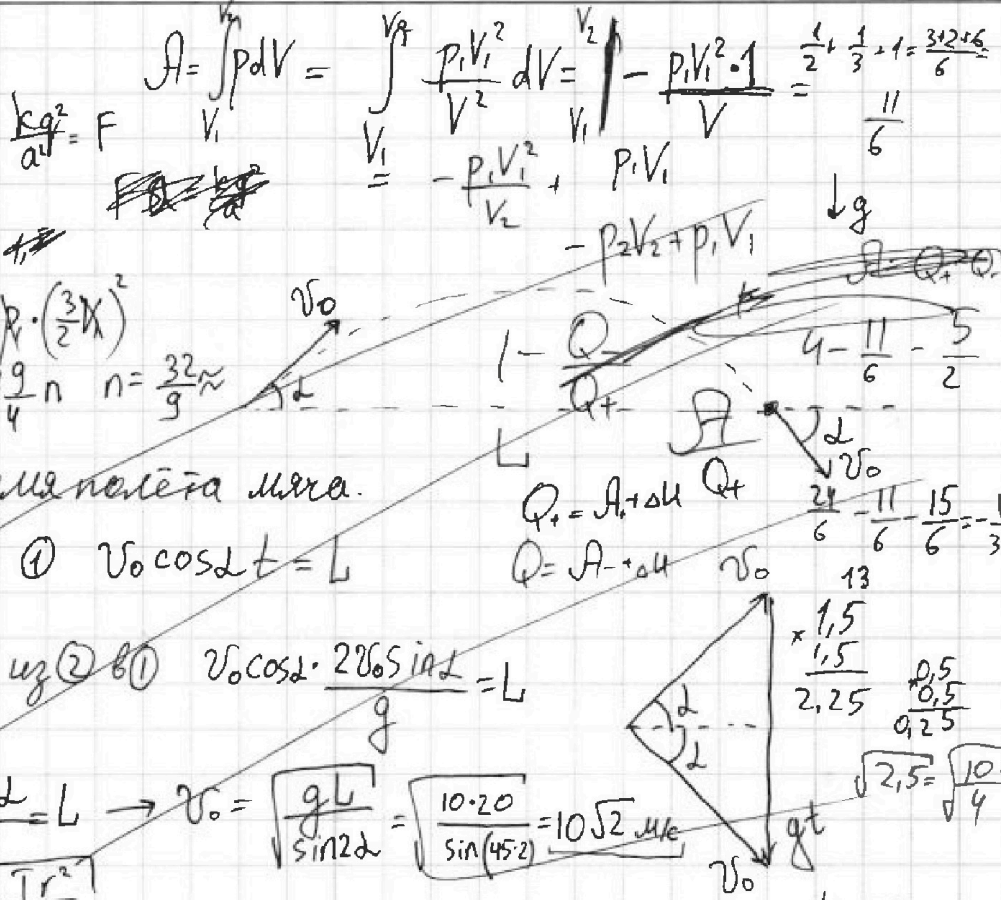 A = ∫_{V₁}^{V₂} pdV = ∫_{V₁}^{V₂} p₁V₁²/V² dV = |_{V₁}^{V₂} - p₁V₁²·1/V =
1/2 + 1/3 + 1 = (3+2+6)/6
11/6
kq²/a² = F
= - p₁V₁²/V₂ + p₁V₁
↓g
- p₂V₂ + p₁V₁
·(3/2)²
v₀
1 - Q₋/Q₊
4 - 11/6 - 5/2
9/4 n n = 32/9 ≈
α
L
A/Q₊
α
v₀
мя полёта мяча.
Q₊ = A₊ + ΔU
24/6 - 11/6 - 15/6 =
① v₀ cosα t = L
Q = A₋ + ΔU
v₀
13
×1,5
1,5
2,25
×0,5
0,5
0,25
из ② в ① v₀ cosα · 2v₀ sinα/g = L
α
α
√2,5 = √10/4
= L → v₀ = √(gL/sin2α) = √(10·20/sin(45·2)) = 10√2 м/с
gt
v₀